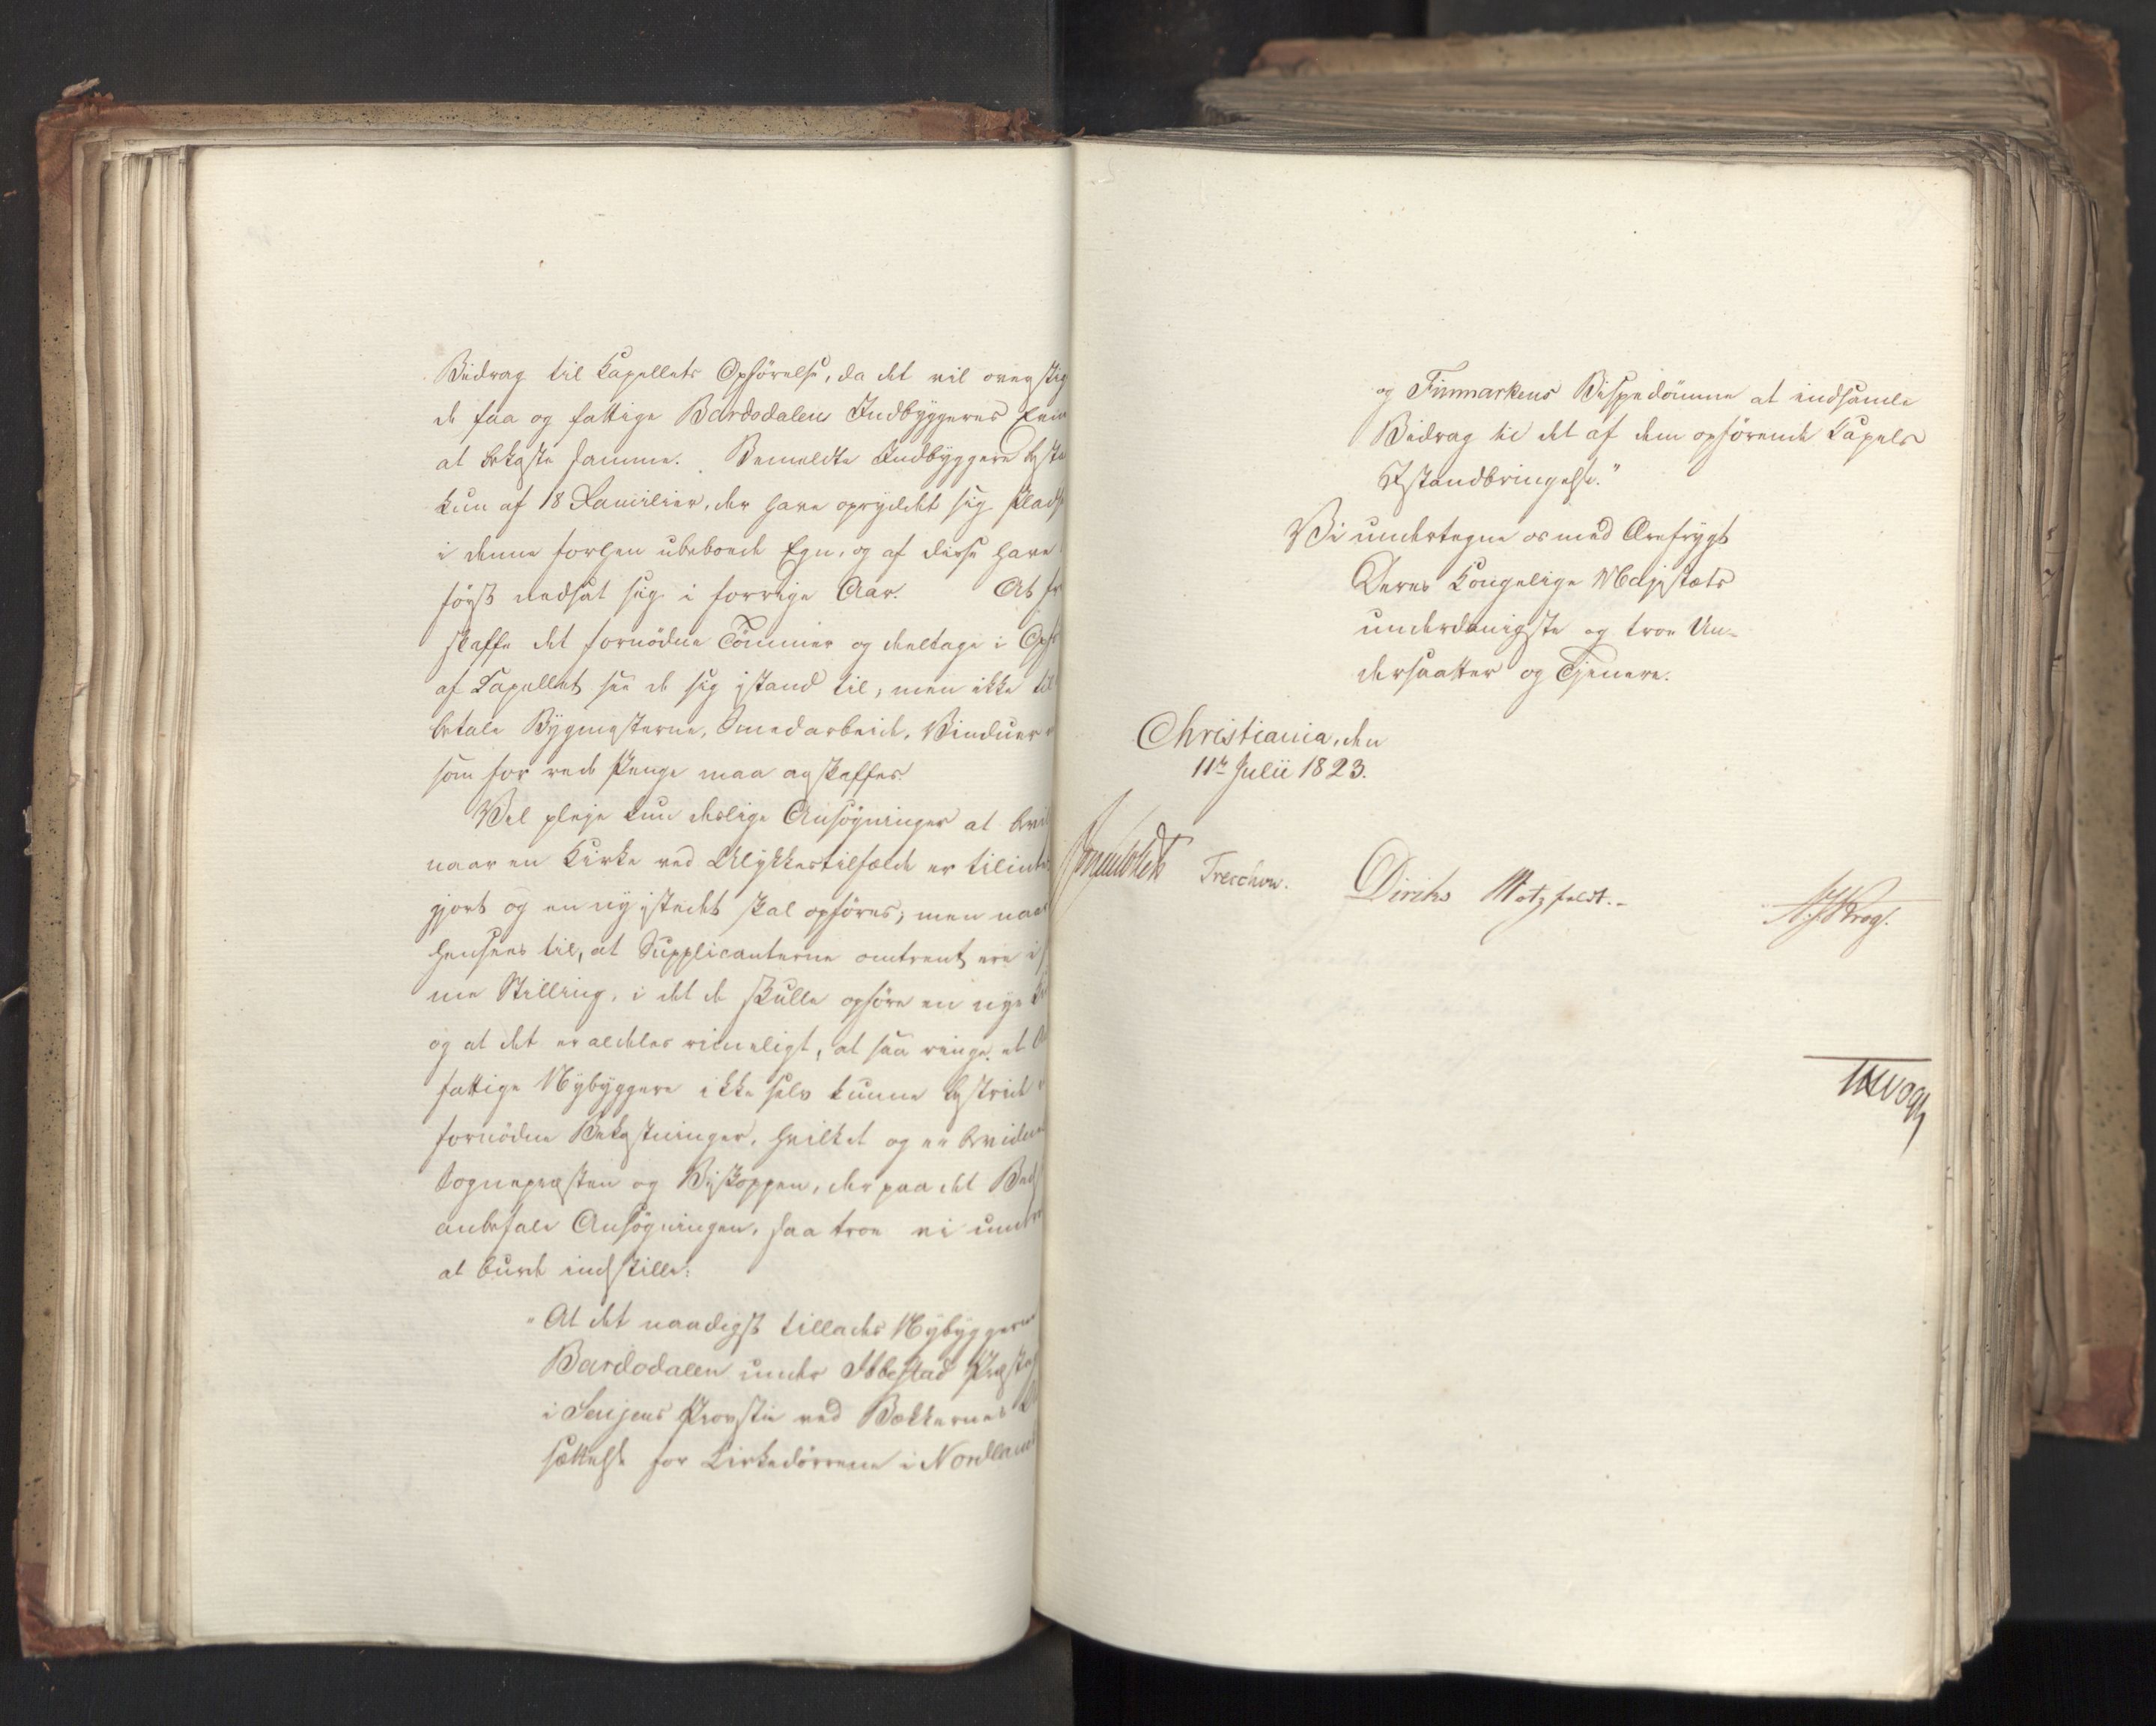 Bidrag til Capellets Opförelse, da det vil overstig
de faa og fattige Bardodalens Indbyggeres Evne
at bekoste samme. Bemeldte Indbyggere beste
kun af 18 Familier, der have opryddet sig Pladse
i denne forhen ubeboede Egn, og af disse have
först nedsat sig i forrige Aar. At fr
skaffe det fornödne Tömmer og deeltage i Opf
af Capellet see de sig istand til, men ikke til
betale Bygmesterne, Smedarbeide, Vinduer
som for rede Penge maa anskaffes.
Vel pleje kun deslige Ansögninger at bevil
naar en Kirke ved Ulykkestilfælde er tilintet
gjort og en ny istedet skal opföres; men naar
hensees til, at Supplicanterne omtrent ere i
me Stilling, i det de skulle opföre en nye
og at det er aldeles rimeligt, at saa ringe et
fattige Nybyggere ikke selv kunne bestride
fornödne Bekostninger, hvilket og er bevidnet
Sognepræsten og Biskoppen, der paa det Beds
anbefale Ansögningen, saa troe vi under
at burde indstille:
"At det naadigst tillades Nybyggerne
Bardodalen under Ibbestad Præste
i Senjens Provstie ved Bækkernes
sættelse for Kirkedörrene i Nordland
og Finmarkens Bispedömme at indsamle
Bidrag til det af dem opförende Capels
Istandbringelse."
Vi undertegne os med Ærefrygt
Deres Kongelige Majestæts
underdanigste og troe Un-
dersaatter og Tjenere.
Christiania, den
11te Julii 1823.
Sommerfeldt Treschow. Diriks Motzfeldt. Krog.
Vogt